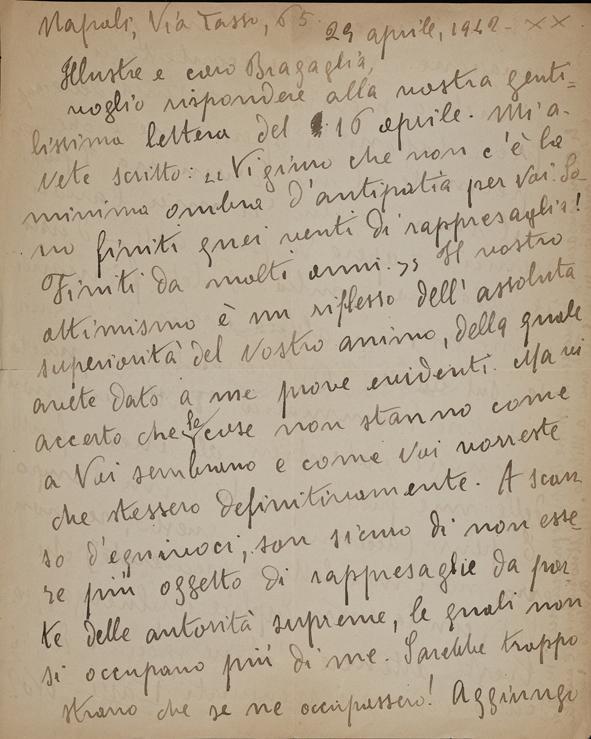 Napoli, Via Tasso, 65.
29 aprile, 1942 - XX
Illustre e caro Bragaglia,
voglio rispondere alla vostra genti-
lissima lettera del 16 aprile. Mi a-
vete scritto: "Vi giuro che non c'è la
minima ombra d'antipatia per voi. So-
no finiti quei venti di rappresaglia!
Finiti da molti anni." Il vostro
ottimismo è un riflesso dell'assoluta
superiorità del Vostro animo, della quale
avete dato a me prove evidenti. Ma vi
accerto che le cose non stanno come
a Voi sembrano e come Voi vorreste
che stessero definitivamente. A scan-
so d'equivoci, son sicuro di non esse-
re più oggetto di rappresaglie da par-
te delle autorità supreme, le quali non
si occupano più di me. Sarebbe troppo
strano che se ne occupassero! Aggiungo